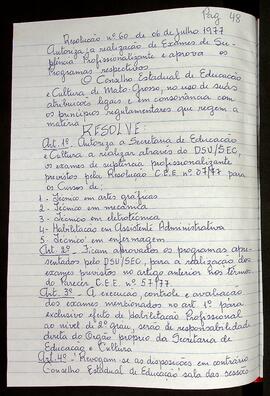 Pag 48
Resolução nº 60 de 06 de julho 1977
Autoriza a realização de Exames de Su-
plência Profissionalizante e aprova os
Programas respectivos
O Conselho Estadual de Educação
e Cultura de Mato Grosso, no uso de suas
atribuições legais e em consonância com
os princípios regulamentares que regem a
matéria
RESOLVE
Art. 1º. Autoriza a Secretaria de Educação
e Cultura a realizar através do DSU/SEC,
os exames de suplência profissionalizante
previstos pela Resolução C.E.E nº 07/77 para
os Cursos de:
1 - Técnico em artes gráficas
2 - Técnico em mecânica
3 - Técnico em eletrotécnica
4 - Habilitação em Assistente Administrativo
5 - Técnico em enfermagem
Art. 2º - Ficam aprovados os programas apre-
sentados pelo DSU/SEC, para a realização dos
exames previstos no artigo anterior nos termos
do Parecer C.E.E. nº 57/77.
Art. 3º - A execução, controle e avaliação
dos exames mencionados no art. 1º para
exclusivo efeito de Habilitação Profissional
ao nível de 2º grau, serão de responsabilidade
direta do Órgão próprio da Secretaria de
Educação e Cultura
Art. 4º - Revogam-se as disposições em contrário
Conselho Estadual de Educação sala das sessões